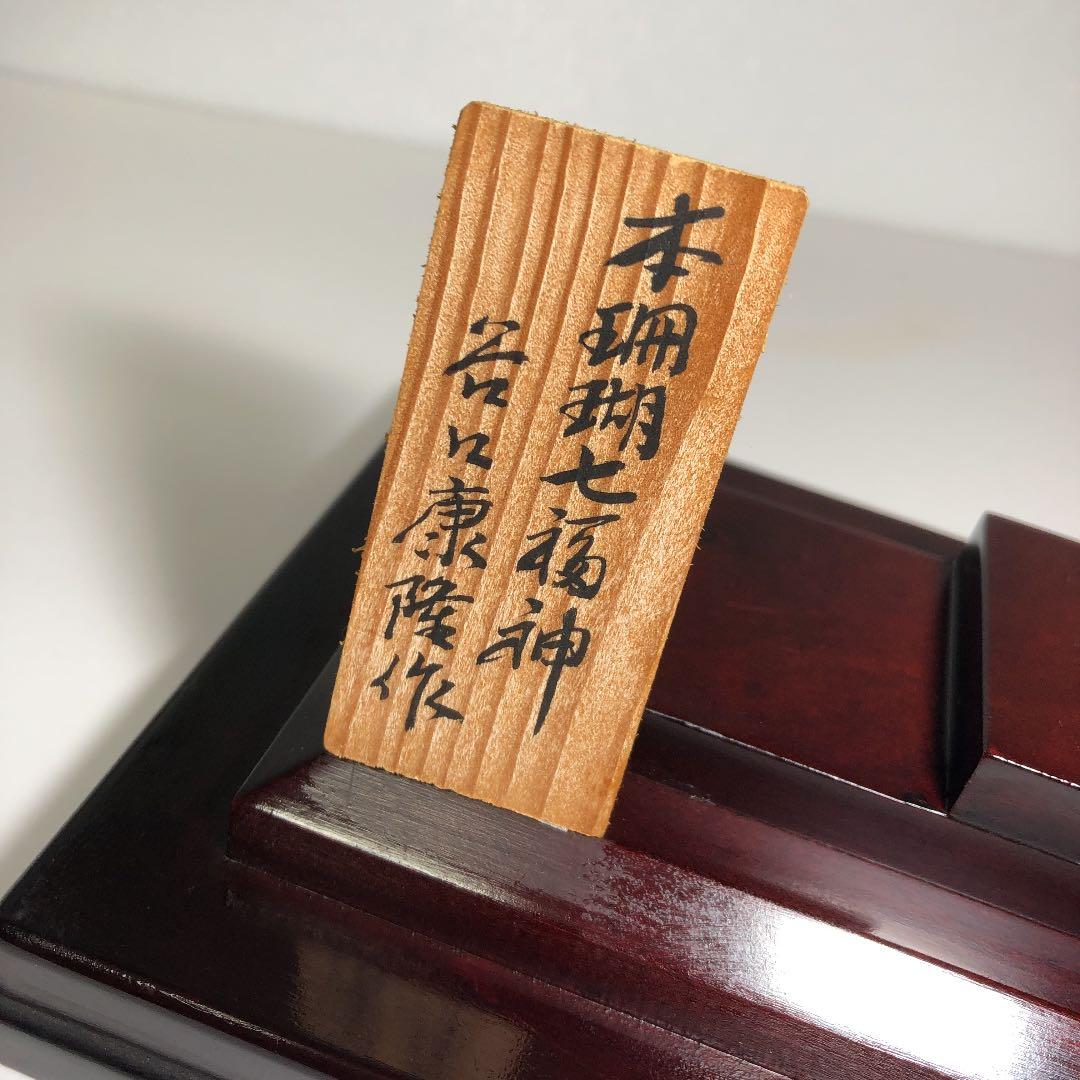 本珊瑚七福神
谷口康隆作